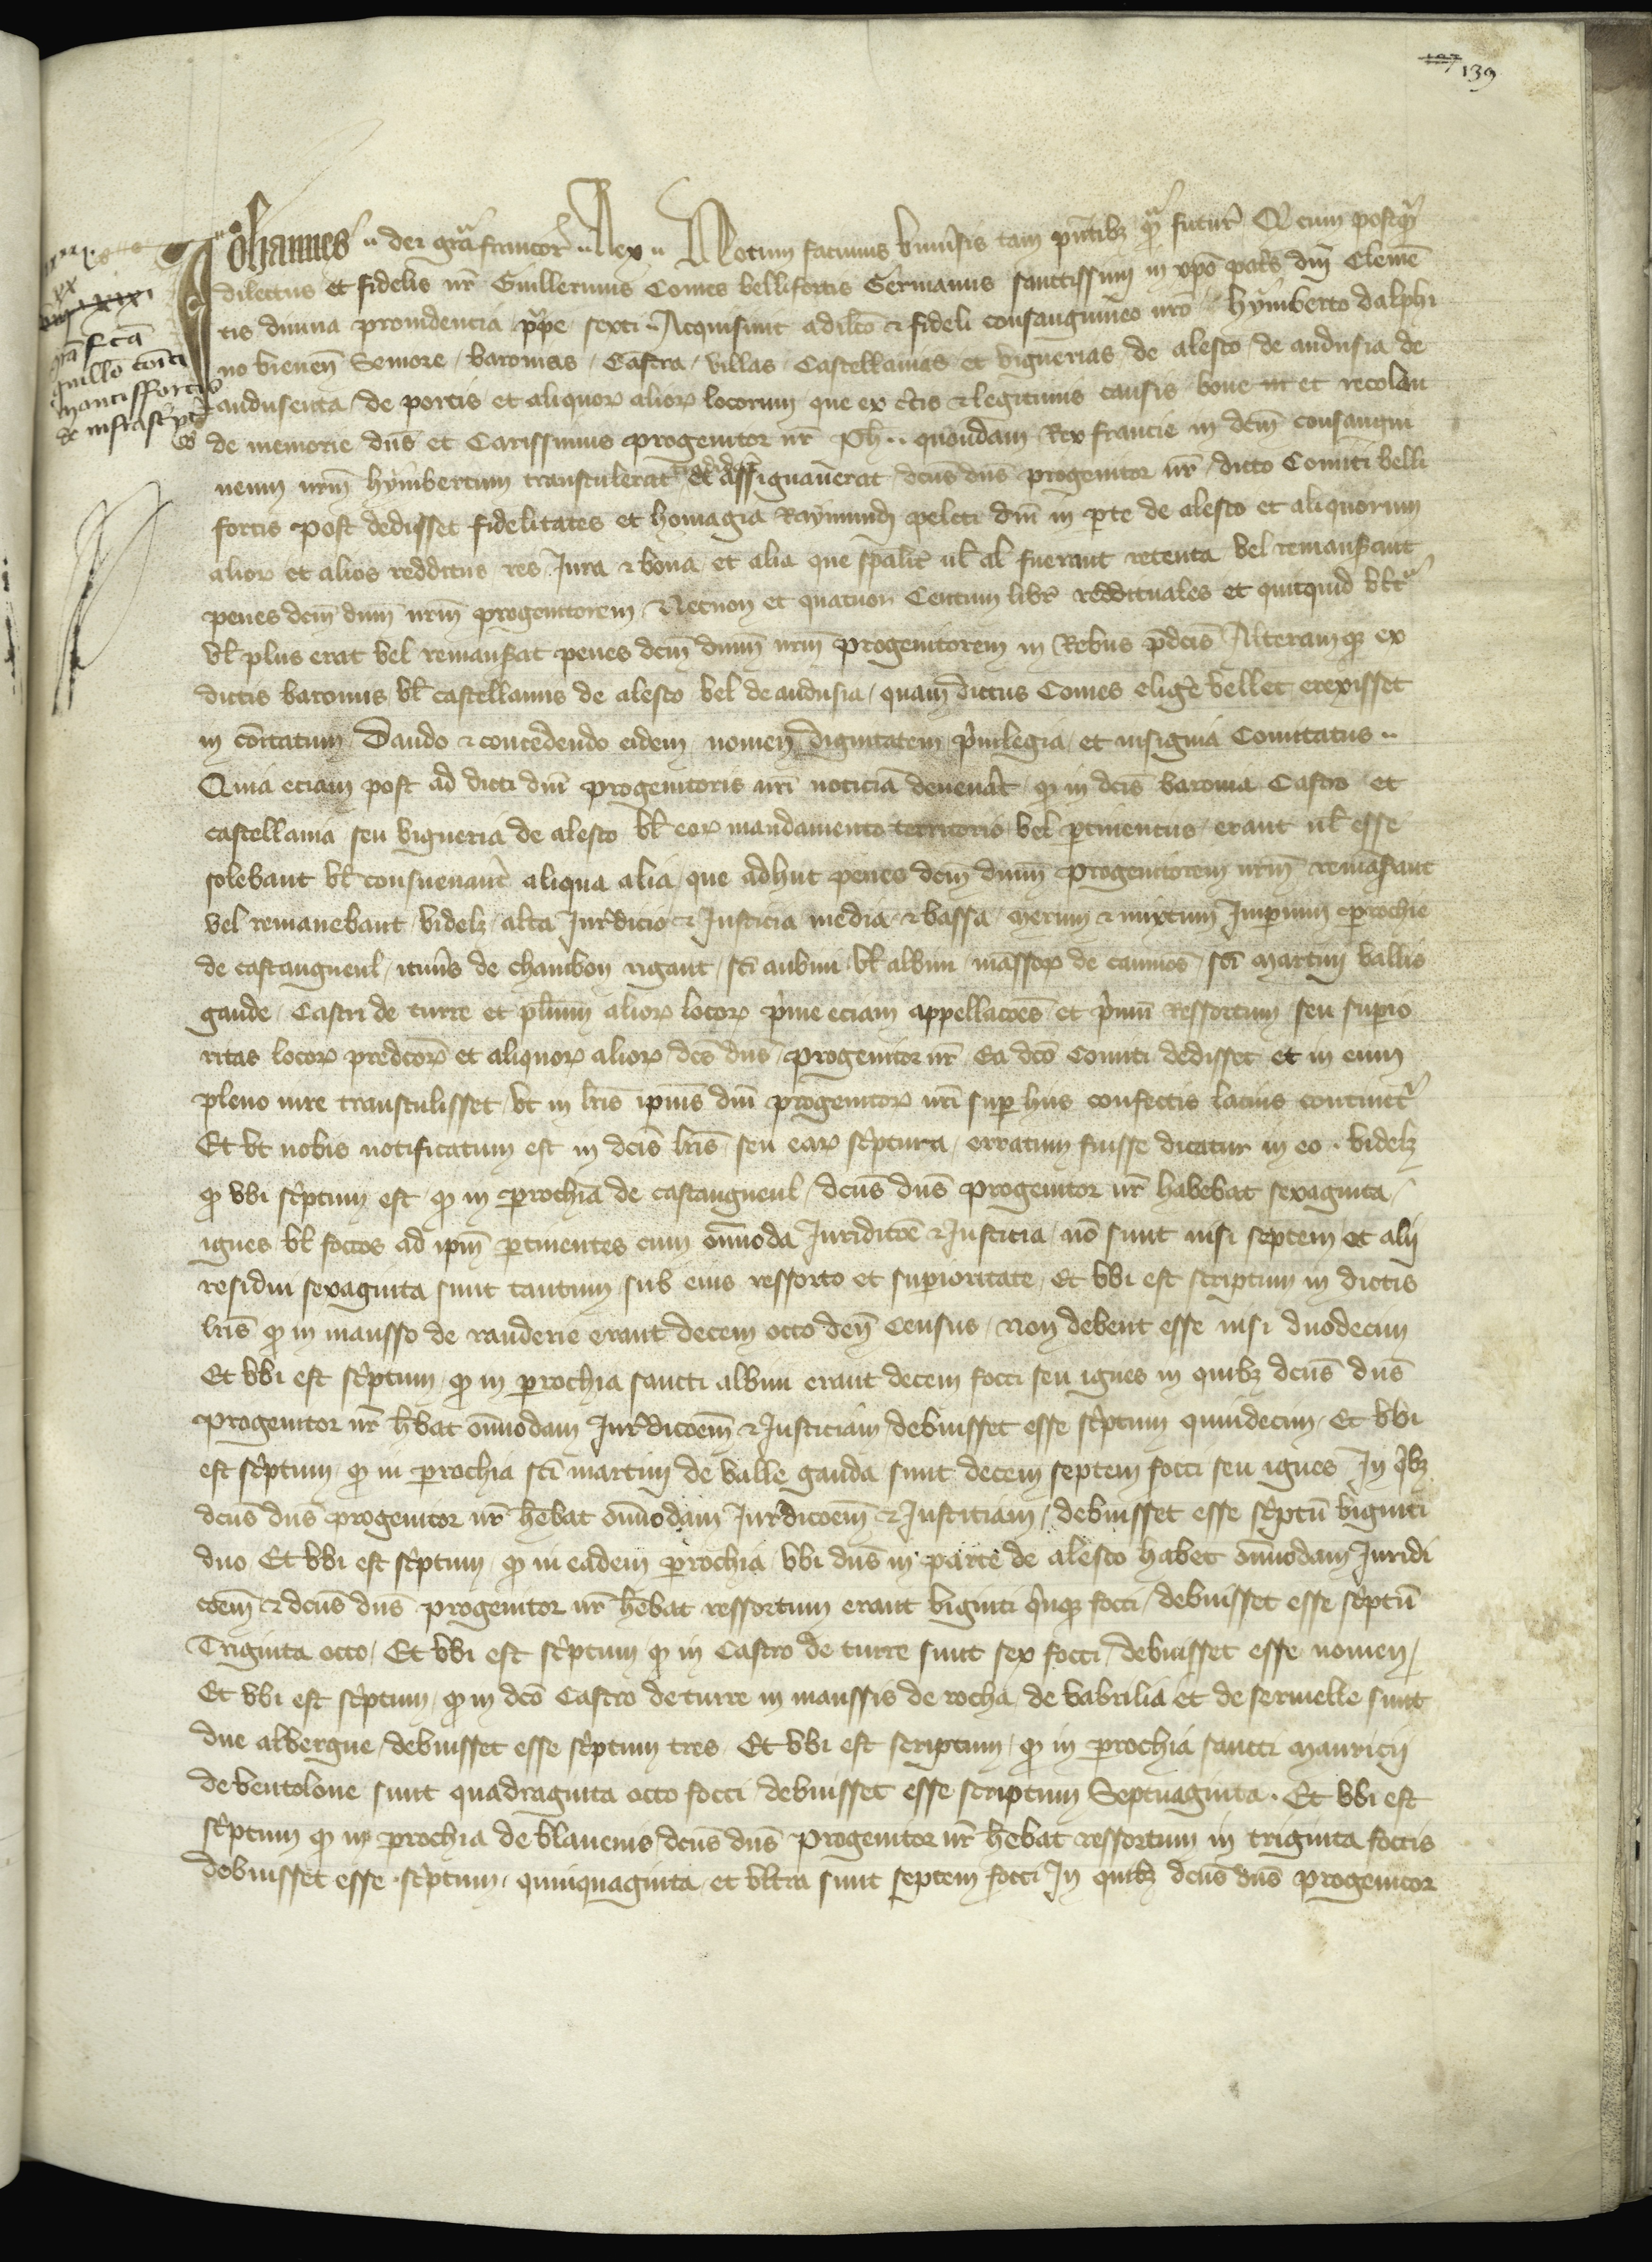 139
Johannes dei grã francor̃ Rex Notum facimus vniũsis tam pñtibȝ q̃ futur̃ Q̃ cum postq̃
dilectus et fidelis nr̃ Guillermus Comes bellifortis Germanus sanctissimi in xp̃o patr̃s dñi Clemẽ
tis diuina prouidencia pp̃e sexti Acquisiuit a dil̃co & fideli consanguineo nr̃o hymberto dalphi
no vienen̄ Seniore baronias Castra villas Castellanias et viguerias de alesto de andusia de
andusenta de portis et aliquoꝝ alioꝝ locorum que ex c̃tis & legitimis causis bone et recolen
de memorie dñs et Carissimus progenitor nr̃ Ph quondam Rex francie in dc̃m consangui
neum nr̃m hymbertum transtulerat et assignauerat dc̃us dñs progenitor nr̃ dicto Comiti belli
fortis post dedisset fidelitates et homagia Raymundi peleti dñi in p̱te de alesto et aliquorum
alioꝝ et alios redditus res Jura & bona et alia que sp̃alit̃ ul̃ al̃ fuerant retenta vel remanserant
penes dc̃m dn̄m nr̃m progenitorem Necnon et quatuor Centum libr̃ reddituales et quitquid
vl̃ plus erat vel remanserat penes dc̃m dn̄m nr̃m progenitorem in Rebus p̃dc̃is Alteramqꝫ ex
dictis baroniis vl̃ castellaniis de alesto vel de andusia quam dictus Comes elig̃e vellet erexisset
in com̃tatum Dando & concedendo eidem nomen dignitatem p̃uilegia et insignia Comitatus
Quia eciam post ad dicti dñi progenitoris nr̃i noticiã deuenãt qꝫ in dc̃is baronia Castro et
castellania seu vigueria de alesto vl̃ eoꝝ mandamento territorio vel p̱tinenciis erant ul̃ esse
solebant vl̃ consueuant̃ aliqua alia que adhuc penes dc̃m dn̄m progenitorem nr̃m remãserant
vel remanebant videlȝ alta Jur̃dicio & Justicia media & bassa merum & mixtum Jmperium p̱rochie
de castangneul itinĩs de chambon rigaut sc̃i aubini vl̃ albini massoꝝ de sc̃i martini vallis
gaude Castri de turre et pl̃rim̃ alioꝝ locoꝝ p̃me eciam appellacões et p̃mũ Ressortum seu sup̱io
ritas locoꝝ predc̃oꝝ et aliquoꝝ alioꝝ dc̃s dñs progenitor nr̃ Ea dc̃o Comiti dedisset et in eum
pleno iure transtulisset vt in lr̃is ip̃ius dñi progenitoꝝ nr̃i sup̱ hiis confectis lacius continet̃
Et vt nobis notificatum est in dc̃is lr̃is seu eaꝝ sc̃ptura erratum fuisse dicatur in eo videlȝ
qꝫ vbi sc̃ptum est qꝫ in p̱rochia de castangneul dc̃us dñs progenitor nr̃ habebat sexaginta
ignes vl̃ foccos ad ip̃m p̱tinentes cum om̃moda Juridic̃oe & Justicia nõ sunt nisi septem et alij
residui sexaginta sunt tantum sub eius ressorto et sup̱ioritate Et vbi est scriptum in dictis
lr̃is qꝫ in mansso de randerie erant decem octo den̄ Census Non debent esse nisi duodecim
Et vbi est sc̃ptum qꝫ in p̱rochia sancti albini erant decem focci seu ignes in quibȝ dc̃us dñs
progenitor nr̃ h̃ebat om̃modam Jur̃dicõem & Justiciam debuisset esse sc̃ptum quindecim Et vbi
est sc̃ptum qꝫ in p̱rochia sc̃i martini de valle gauda sunt decem septem focci seu ignes Jn q̃bȝ
dc̃us dñs progenitor nr̃ h̃ebat om̃modam Jur̃dicõem & Justiciam debuisset esse sc̃ptũ viginti
duo Et vbi est sc̃ptum qꝫ in eadem p̱rochia vbi dñs in parte de alesto habet om̃modam Juridi
cõem & dc̃us dñs progenitor nr̃ h̃ebat ressortum erant viginti q̃nqꝫ focci debuisset esse sc̃ptũ
Triginta octo Et vbi est sc̃ptum qꝫ in Castro de turre sunt sex focci debuisset esse nouem
Et vbi est sc̃ptum qꝫ in dc̃o Castro de turre in manssis de rocha de vabrilia et de sermelle sunt
due albergue debuisset esse sc̃ptum tres Et vbi est scriptum qꝫ in p̱rochia sancti mauricij
de ventolone sunt quadraginta octo focci debuisset esse scriptum Septuaginta Et vbi est
sc̃ptum qꝫ in p̱rochia de blauenis dc̃us dñs progenitor nr̃ h̃ebat ressortum in triginta foccis
debuisset esse sc̃ptum quinquaginta et vltra sunt septem focci Jn quibȝ dc̃us dñs progenitor